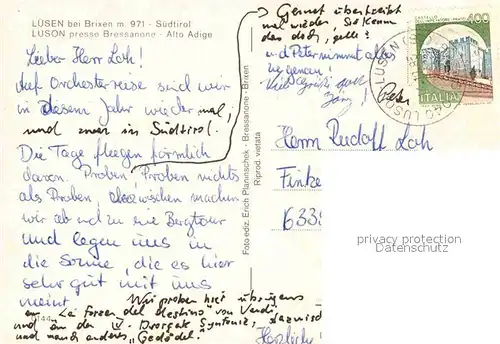 LÜSEN bei Brixen m. 971 - Südtirol
LUSON presso Bressanone - Alto Adige
Lieber Herr Loh!
Auf Orchesterreise sind wir
in diesem Jahr wieder mal,
und zwar in Südtirol.
Die Tage fliegen förmlich
davon. Proben, Proben nichts
als Proben, dazwischen machen
wir ab und zu eine Bergtour
und legen uns in
die Sonne, die es hier
sehr gut mit uns
meint.
Wir proben hier übrigens
"La forza del destino" von Verdi
und an der V. Dvorzak Synfonie, dazwisch
und noch anderes "Gedödel".
Herzliche
6144
Foto ediz. Erich Planinschek - Bressanone - Brixen
Ripr. vietata
Gernot übertreibt
mal wieder, Sie kennen
das doch, gelle?
und Peter nimmt alles
zu genau
Viele Grüße
Peter
CASTELLO
400
ITALIA
LUSON
LÜSEN
Herrn Rudolf Loh
Finke
633
privacy protection
www.ansichtskartenversand.com